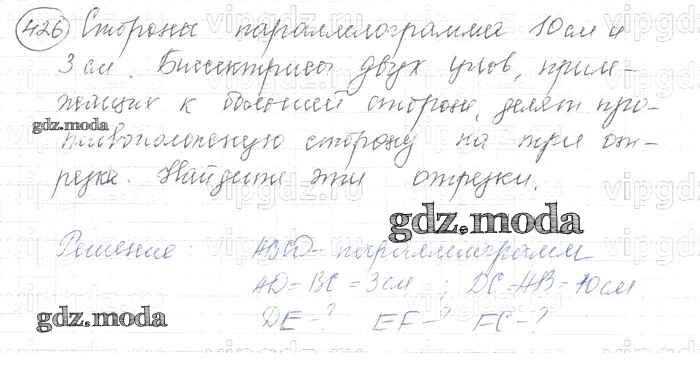 426 Стороны параллелограмма 10 см и
3 см. Биссектрисы двух углов, приле-
жащих к большей стороне, делят про-
тивоположную сторону на три от-
резка. Найдите эти отрезки.
gdz.moda
gdz.moda
Решение: ABCD - параллелограмм
AD = BC = 3 см ; DC = AB = 10 см
gdz.moda
DE - ? EF - ? FC - ?